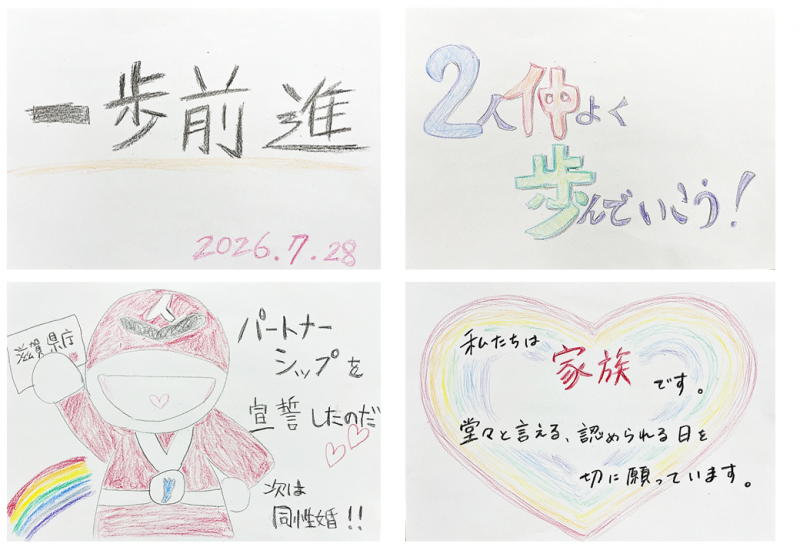 一歩前進
2026.7.28
2人仲よく
歩んでいこう!
滋賀県庁
パートナー
シップを
宣誓したのだ
次は
同性婚!!
私たちは
家族です。
堂々と言える、認められる日を
切に願っています。